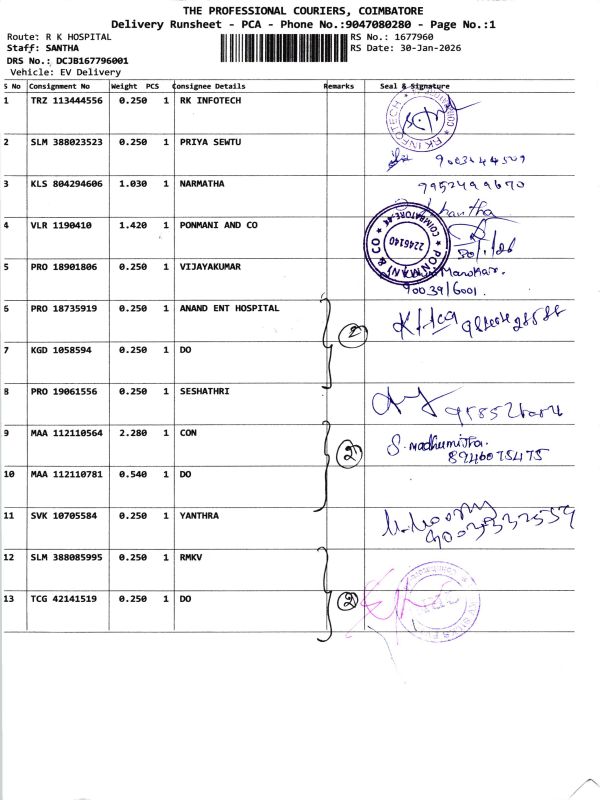 THE PROFESSIONAL COURIERS, COIMBATORE
Delivery Runsheet - PCA - Phone No.:9047080280 - Page No.:1
Route: R K HOSPITAL RS No.: 1677960
Staff: SANTHA RS Date: 30-Jan-2026
DRS No.: DCJB167796001
Vehicle: EV Delivery
S No Consignment No Weight PCS Consignee Details Remarks Seal & Signature
1 TRZ 113444556 0.250 1 RK INFOTECH
RK INFOTECH
2 SLM 388023523 0.250 1 PRIYA SEWTU
3 KLS 804294606 1.030 1 NARMATHA
4 VLR 1190410 1.420 1 PONMANI AND CO
PONMANI & CO COIMBATORE 2246140
30/1/26
5 PRO 18901806 0.250 1 VIJAYAKUMAR
Manohar.
90039/6001.
6 PRO 18735919 0.250 1 ANAND ENT HOSPITAL
2
7 KGD 1058594 0.250 1 DO
8 PRO 19061556 0.250 1 SESHATHRI
9 MAA 112110564 2.280 1 CON
2 S. Madhumitha.
8946075475
10 MAA 112110781 0.540 1 DO
11 SVK 10705584 0.250 1 YANTHRA
12 SLM 388085995 0.250 1 RMKV
13 TCG 42141519 0.250 1 DO
2